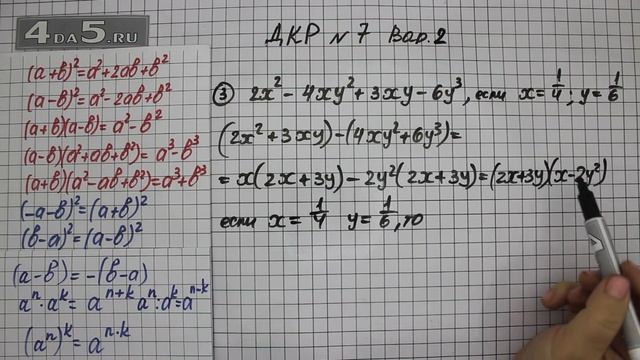 4DA5.RU
(a+b)²=a²+2ab+b²
(a-b)²=a²-2ab+b²
(a+b)(a-b)=a²-b²
(a-b)(a²+ab+b²)=a³-b³
(a+b)(a²-ab+b²)=a³+b³
(-a-b)²=(a+b)²
(b-a)²=(a-b)²
(a-b)=-(b-a)
aⁿ·aᵏ=aⁿ⁺ᵏ aⁿ:aᵏ=aⁿ⁻ᵏ
(aⁿ)ᵏ=aⁿ·ᵏ
ДКР №7 Вар.2
③ 2x²-4xy²+3xy-6y³, если x=1/4; y=1/6
(2x²+3xy)-(4xy²+6y³)=
=x(2x+3y)-2y²(2x+3y)=(2x+3y)(x-2y²)
если x=1/4 y=1/6, то